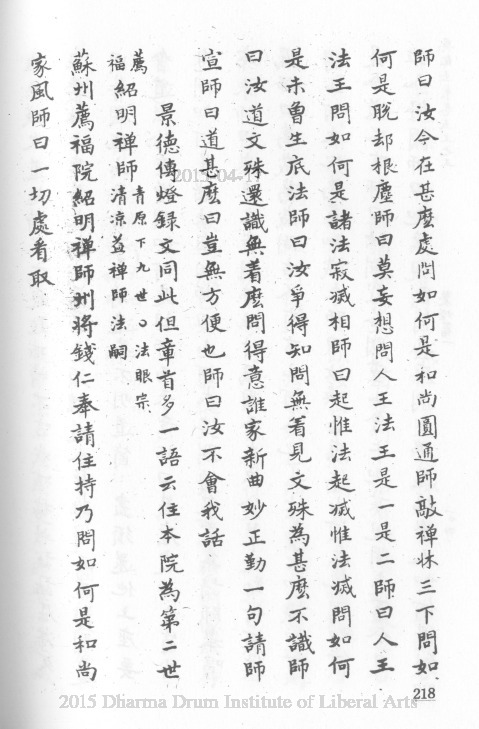 師曰汝今在甚麼處問如何是和尚圓通師敲禪牀三下問如
何是脫却根塵師曰莫妄想問人王法王是一是二師曰人王
法王問如何是諸法寂滅相師曰起惟法起滅惟法滅問如何
是未曾生底法師曰汝爭得知問無着見文殊為甚麼不識師
曰汝道文殊還識無着麼問得意誰家新曲妙正勤一句請師
宣師曰道甚麼曰豈無方便也師曰汝不會我話
景德傳燈錄文同此但章首多一語云住本院為第二世
薦福紹明禪師青原下九世○法眼宗清凉益禪師法嗣
蘇州薦福院紹明禪師州將錢仁奉請住持乃問如何是和尚
家風師曰一切處看取
218
2015-04-11
2015 Dharma Drum Institute of Liberal Arts